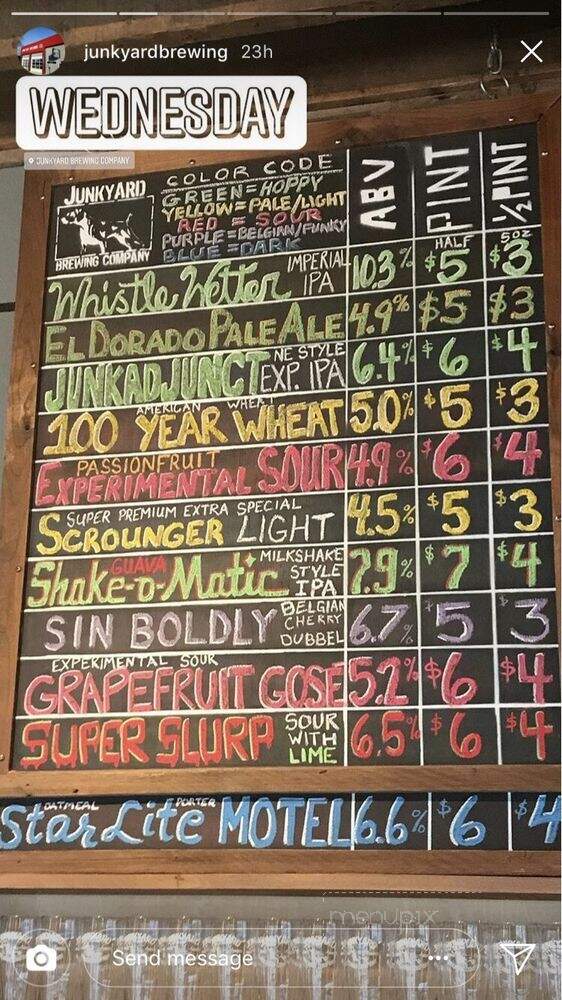 junkyardbrewing 23h
WEDNESDAY
JUNKYARD BREWING COMPANY
JUNKYARD
BREWING COMPANY
COLOR CODE
GREEN=HOPPY
YELLOW=PALE/LIGHT
RED = SOUR
PURPLE=BELGIAN/FUNKY
BLUE=DARK
ABV PINT ½ PINT
HALF 5OZ
Whistle Wetter IMPERIAL IPA 10.3% $5 $3
EL DORADO PALE ALE 4.9% $5 $3
JUNKADJUNCT NE STYLE EXP. IPA 6.4% $6 $4
AMERICAN WHEAT
100 YEAR WHEAT 5.0% $5 $3
PASSIONFRUIT
EXPERIMENTAL SOUR 4.9% $6 $4
SUPER PREMIUM EXTRA SPECIAL
SCROUNGER LIGHT 4.5% $5 $3
GUAVA
Shake-o-Matic MILKSHAKE STYLE IPA 7.9% $7 $4
SIN BOLDLY BELGIAN CHERRY DUBBEL 6.7% $5 3
EXPERIMENTAL SOUR
GRAPEFRUIT GOSE 5.2% $6 $4
SUPER SLURP SOUR WITH LIME 6.5% $6 $4
OATMEAL PORTER
StarLite MOTEL 6.6% $6 $4
menupix
Send message